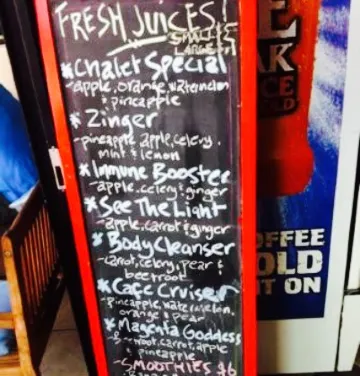 FRESH JUICES!
SMALL
LARGE
*Chalet Special
-apple, orange, watermelon
& pineapple
* Zinger
-pineapple, apple, celery,
mint & lemon
* Immune Booster
-apple, celery & ginger
*See The Light
-apple, carrot & ginger
* BodyCleanser
-carrot, celery, pear &
beetroot
*Cafe Cruiser
-pineapple, watermelon,
orange & pear
*Magenta Goddess
carrot, apple
& pineapple
-SMOOTHIES $6
E
AK
CE
LD
OFFEE
OLD
IT ON